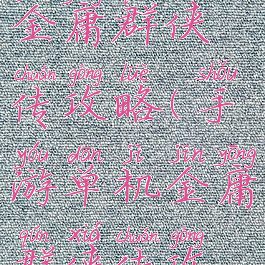 金庸群侠
chuán gōng lüè shǒu
传攻略(手
yóu dān jī jīn yōng
游单机金庸
qún xiá chuán gōng